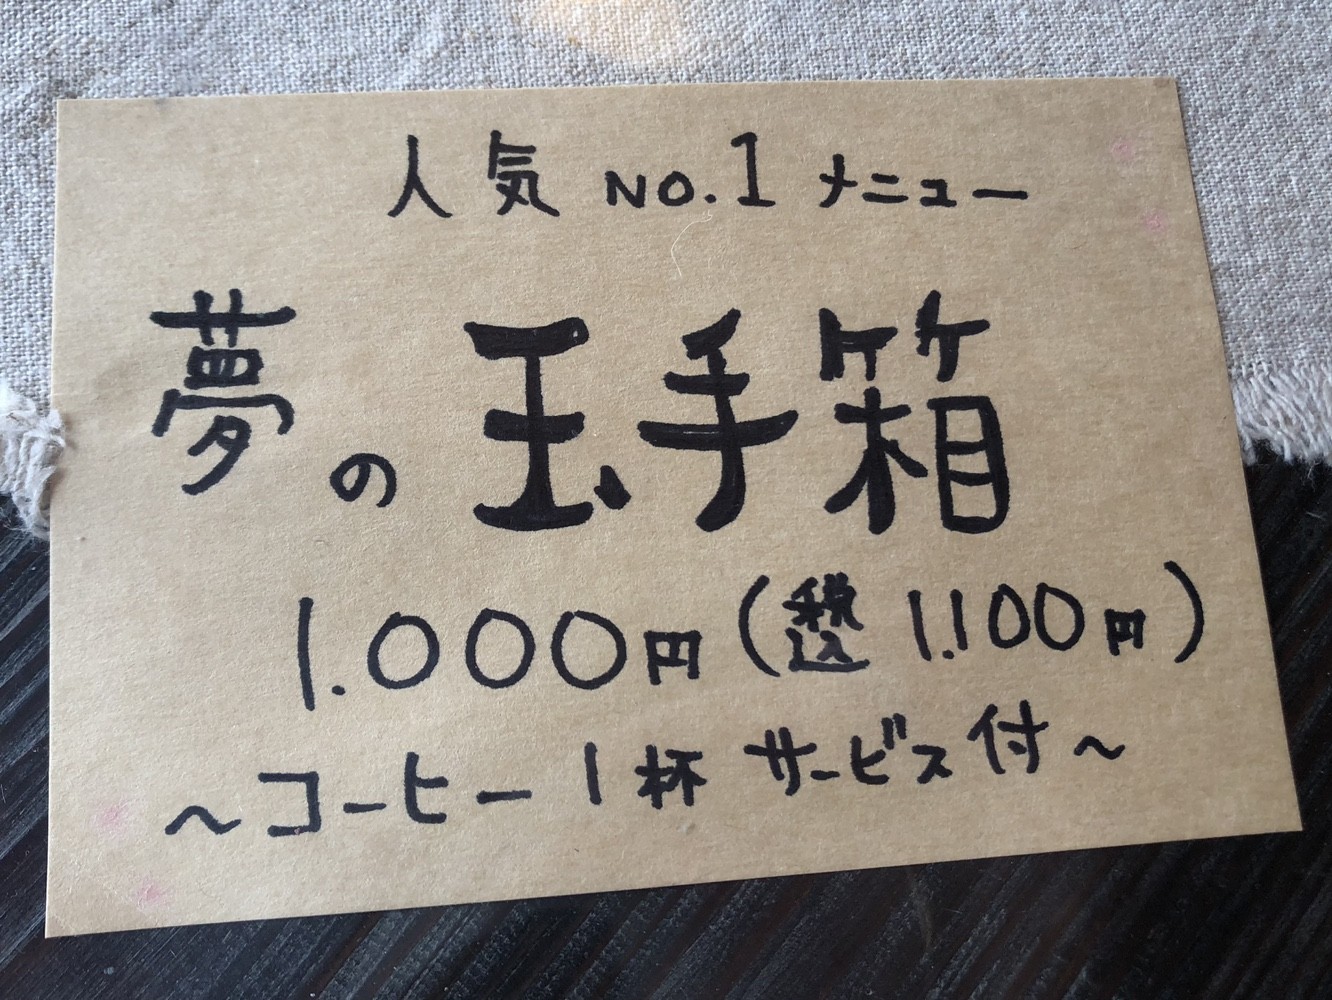 人気 NO.1 メニュー
夢の玉手箱
1.000円(税込 1.100円)
～コーヒー1杯 サービス付～